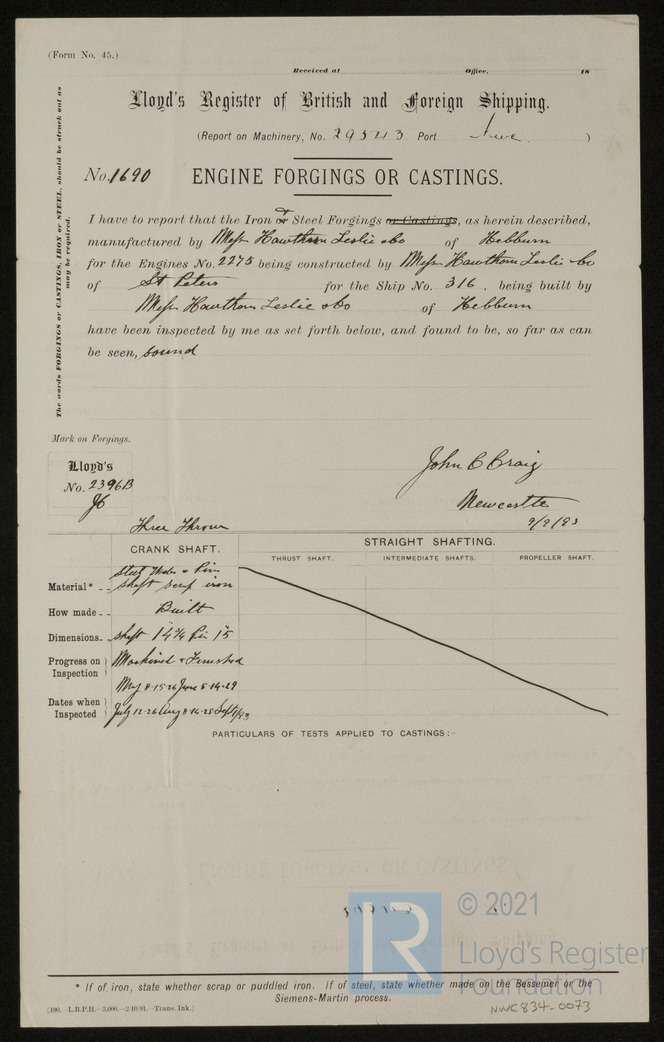 (Form No. 45.)
Received at Office, 18
Lloyd's Register of British and Foreign Shipping.
(Report on Machinery, No. 29543 Port Nwc. )
No. 1690 ENGINE FORGINGS OR CASTINGS.
The words FORGINGS or CASTINGS, IRON or STEEL, should be struck out as may be required.
I have to report that the Iron & Steel Forgings or Castings, as herein described,
manufactured by Messrs Hawthorn Leslie & Co of Hebburn
for the Engines No. 2275 being constructed by Messrs Hawthorn Leslie & Co
of St Peters for the Ship No. 316, being built by
Messrs Hawthorn Leslie & Co of Hebburn
have been inspected by me as set forth below, and found to be, so far as can
be seen, sound
Mark on Forgings.
Lloyd's
No. 2396B
JC
John C Craig
Newcastle
9/9/93
Three Throw
CRANK SHAFT. STRAIGHT SHAFTING.
THRUST SHAFT. INTERMEDIATE SHAFTS. PROPELLER SHAFT.
Steel Webs & Pins
Material* shaft scrap iron
How made Built
Dimensions shaft 14¾ Pin 15
Progress on Inspection Machined & Finished
May 8-15-26 June 5-14-29
Dates when Inspected July 12-26 Aug 8-14-25 Sept
PARTICULARS OF TESTS APPLIED TO CASTINGS:—
© 2021
Lloyd's Register
Foundation
LR
* If of iron, state whether scrap or puddled iron. If of steel, state whether made on the Bessemer or the
Siemens-Martin process.
[190.—L.R.P.H.—3,000.—2/10/91.—Trans. Ink.]
NWC834-0073